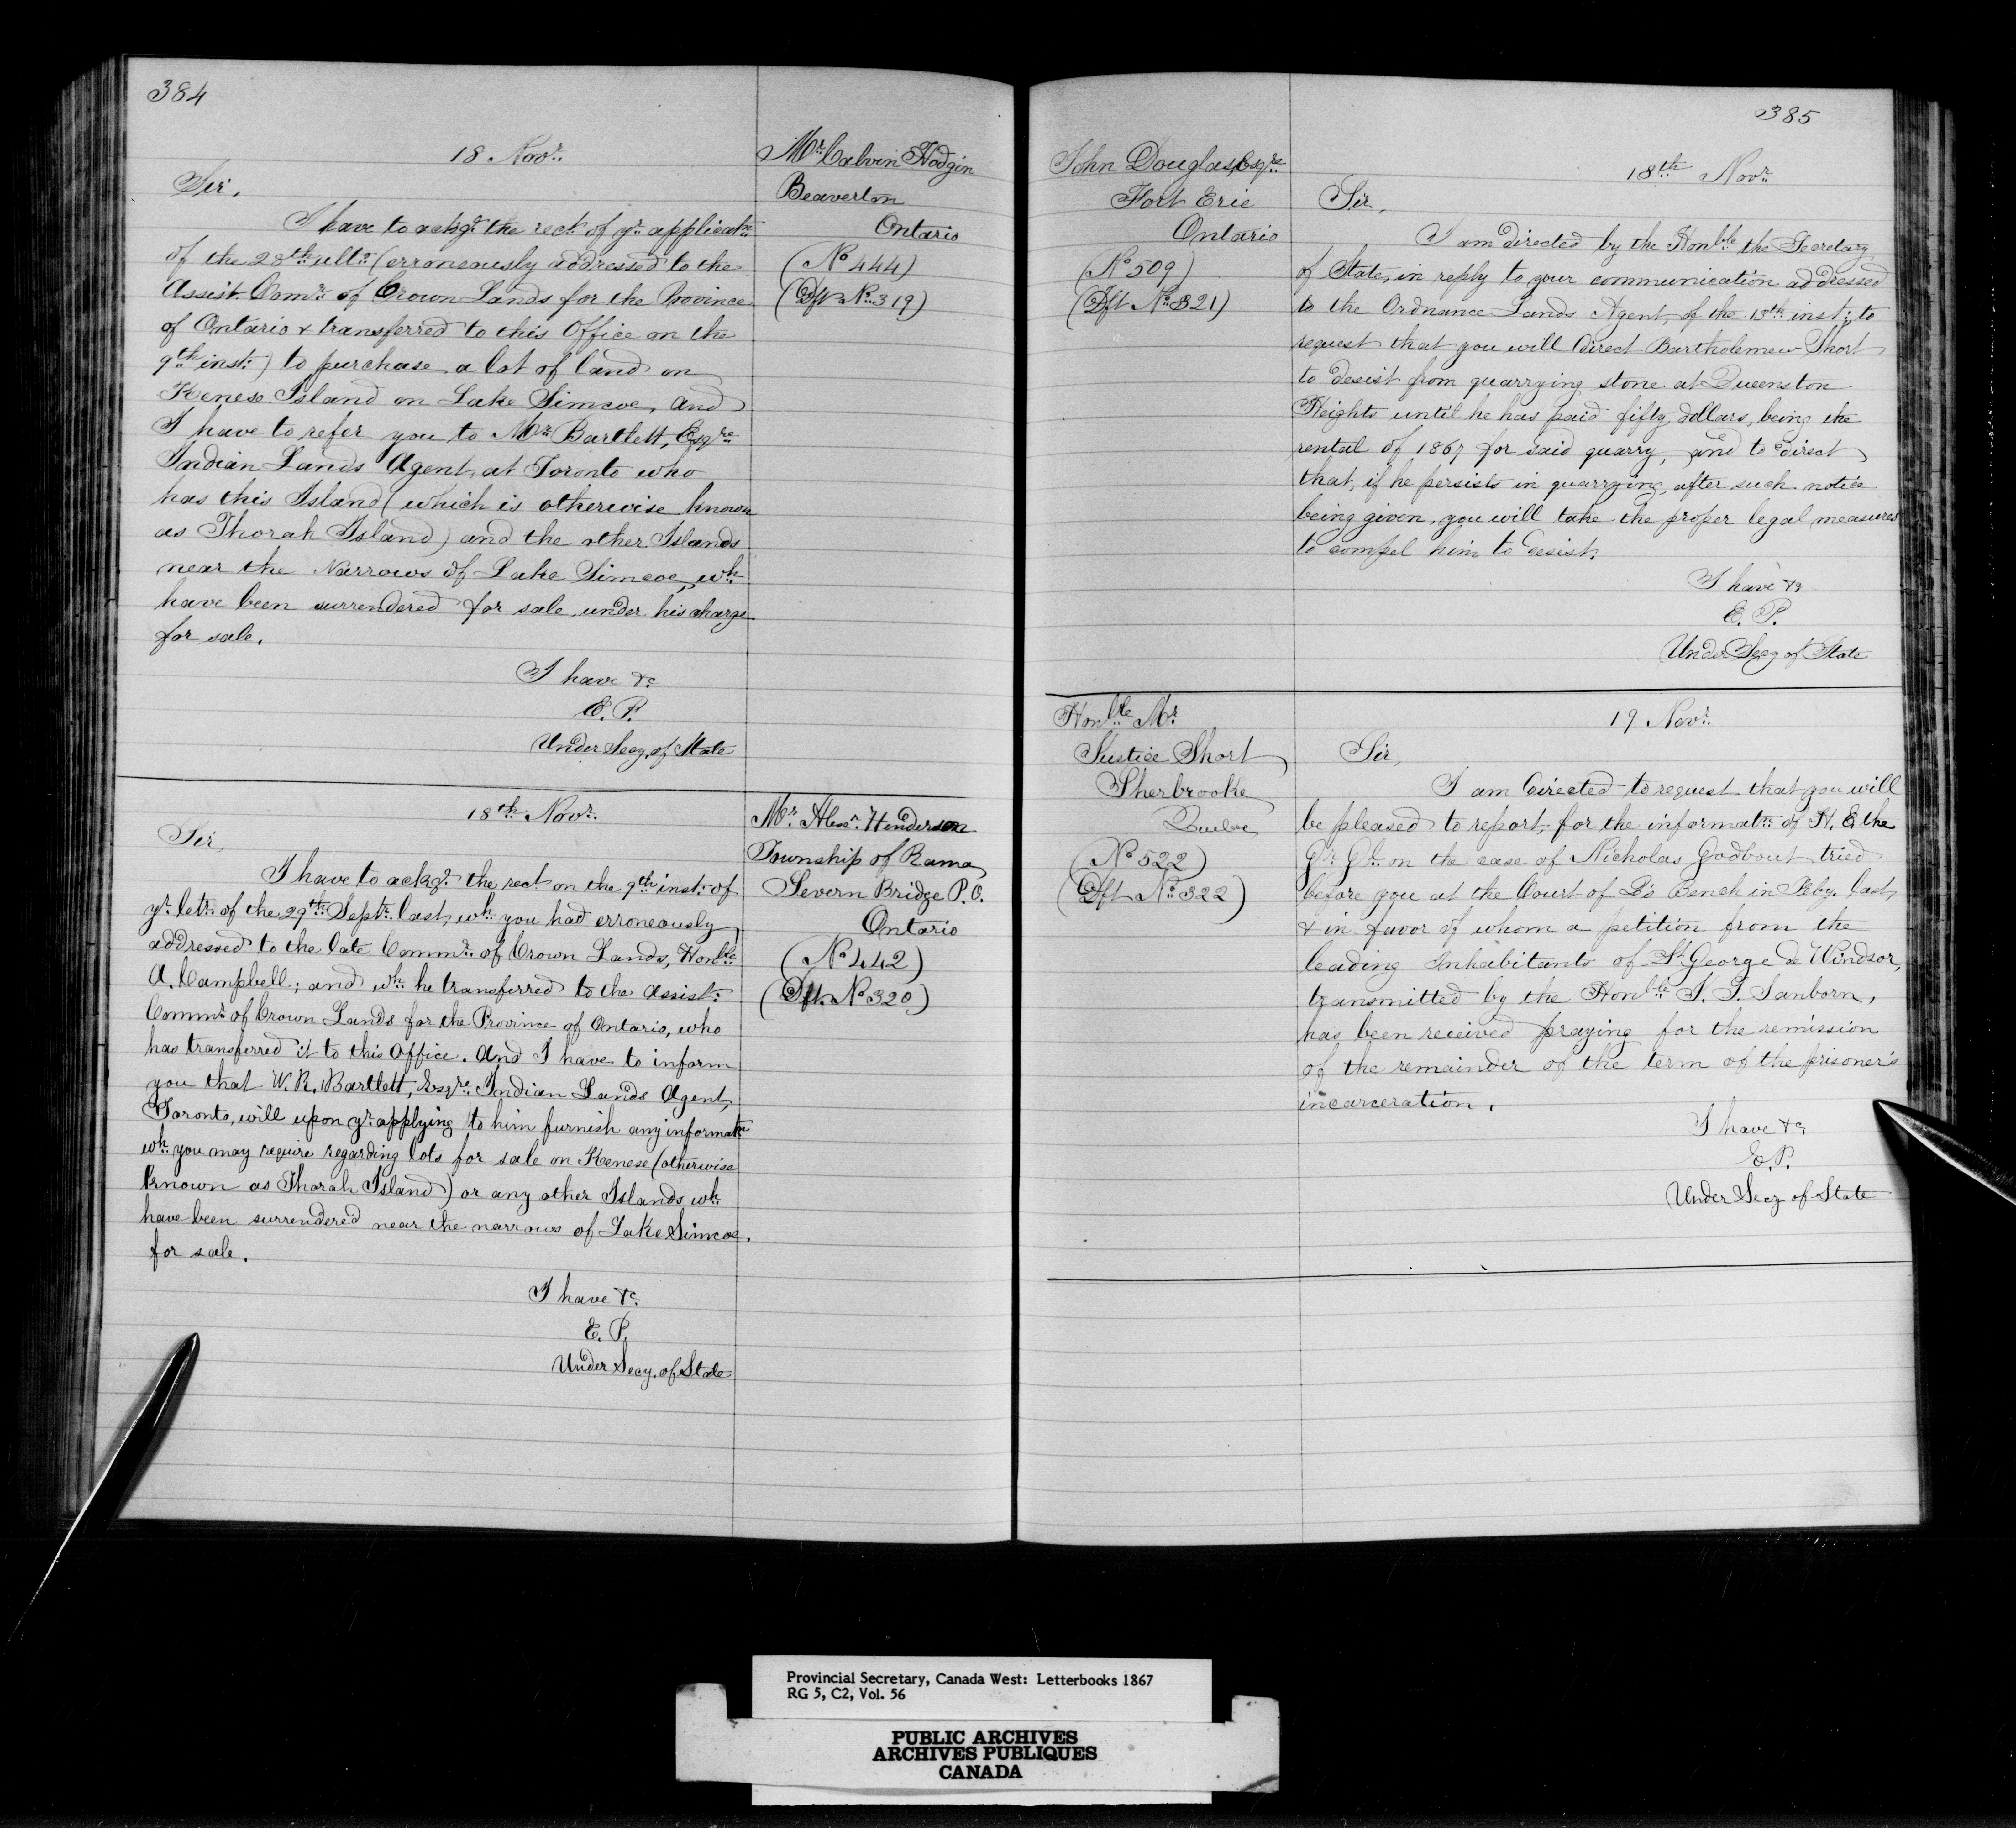 384
18 Novr.
Mr. Calvin Hodgin
Beaverton
Ontario
(No 444)
(Dft No. 319)
Sir,
I have to ackgr. the rect. of yr. applicatn.
of the 28th ulto. (erroneously addressed to the
Assist. Comr. of Crown Lands for the Province
of Ontario & transferred to this Office on the
9th inst.) to purchase a lot of land on
Kenese Island on Lake Simcoe, and
I have to refer you to Mr. Bartlett, Esqre
Indian Lands Agent, at Toronto who
has this Island (which is otherwise known
as Thorah Island) and the other Islands
near the Narrows of Lake Simcoe, wh.
have been surrendered for sale, under his charge
for sale.
I have &c
E. P.
Under Secy. of State
18th Novr.
Mr. Alexr. Henderson
Township of Rama
Severn Bridge P.O.
Ontario
(No 442)
(Dft. No 320)
Sir,
I have to ackgr. the rect. on the 9th inst. of
yr. letr. of the 29th Septr. last, wh. you had erroneously
addressed to the late Commr. of Crown Lands, Honble
A. Campbell; and wh. he transferred to the Assist.
Commr. of Crown Lands for the Province of Ontario, who
has transferred it to this Office. And I have to inform
you that W. R. Bartlett, Esqre. Indian Lands Agent,
Toronto, will upon yr. applying to him furnish any informatn
wh. you may require regarding lots for sale on Kenese (otherwise
known as Thorah Island) or any other Islands wh.
have been surrendered near the narrows of Lake Simcoe.
for sale.
I have &c.
E. P.
Under Secy. of State
385
John Douglas Esqre
Fort Erie
Ontario
(No 509)
(Dft No. 321)
18th Novr.
Sir,
I am directed by the Honble the Secretary
of State, in reply to your communication addressed
to the Ordnance Lands Agent, of the 13th inst; to
request that you will direct Bartholemew Short
to desist from quarrying stone at Queenston
Heights until he has paid fifty dollars, being the
rental of 1867 for said quarry, and to direct
that, if he persists in quarrying, after such notice
being given, you will take the proper legal measures
to compel him to desist.
I have &c
E. P.
Under Secy of State
Honble Mr.
Justice Short
Sherbrooke
Quebec
(No 522)
(Dft No. 322)
19 Novr.
Sir,
I am directed to request that you will
be pleased to report, for the informatn. of H. E. the
Gr. Gl. on the case of Nicholas Godbout tried
before you at the Court of Q's Bench in Feby. last,
& in favor of whom a petition from the
leading Inhabitants of St. George de Windsor,
transmitted by the Honble J. S. Sanborn,
has been received praying for the remission
of the remainder of the term of the prisoner's
incarceration.
I have &c
E. P.
Under Secy of State
Provincial Secretary, Canada West: Letterbooks 1867
RG 5, C2, Vol. 56
PUBLIC ARCHIVES
ARCHIVES PUBLIQUES
CANADA